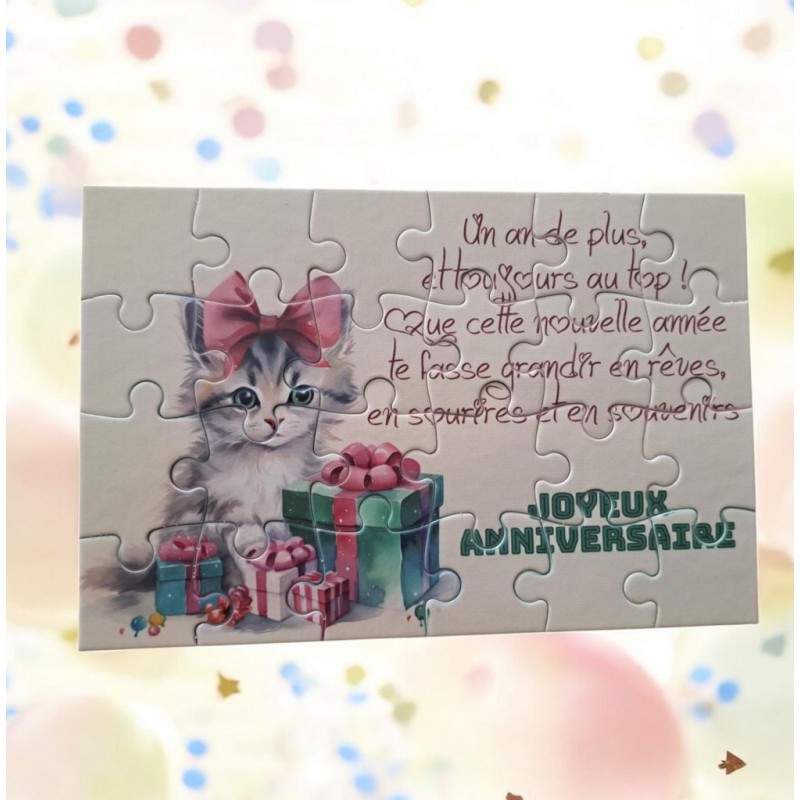 Un an de plus,
et toujours au top !
Que cette nouvelle année
te fasse grandir en rêves,
en sourires et en souvenirs
JOYEUX
ANNIVERSAIRE